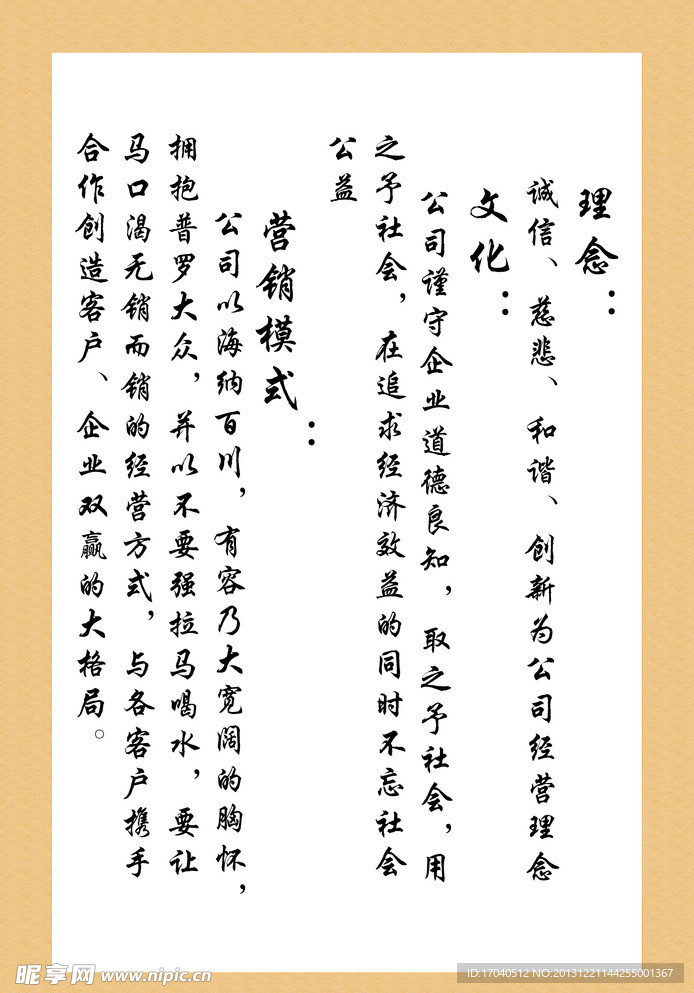 理念：
诚信、慈悲、和谐、创新为公司经营理念
文化：
公司谨守企业道德良知，取之予社会，用
之予社会，在追求经济效益的同时不忘社会
公益
营销模式：
公司以海纳百川，有容乃大宽阔的胸怀，
拥抱普罗大众，并以不要强拉马喝水，要让
马口渴无销而销的经营方式，与各客户携手
合作创造客户、企业双赢的大格局。
昵享网 www.nipic.cn
ID:17040512 NO:20131221144255001367